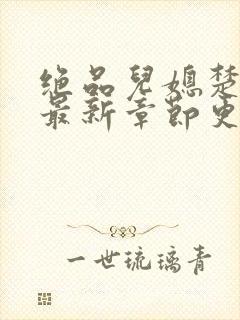 绝品儿媳楚
最新章节更
一世琉璃青